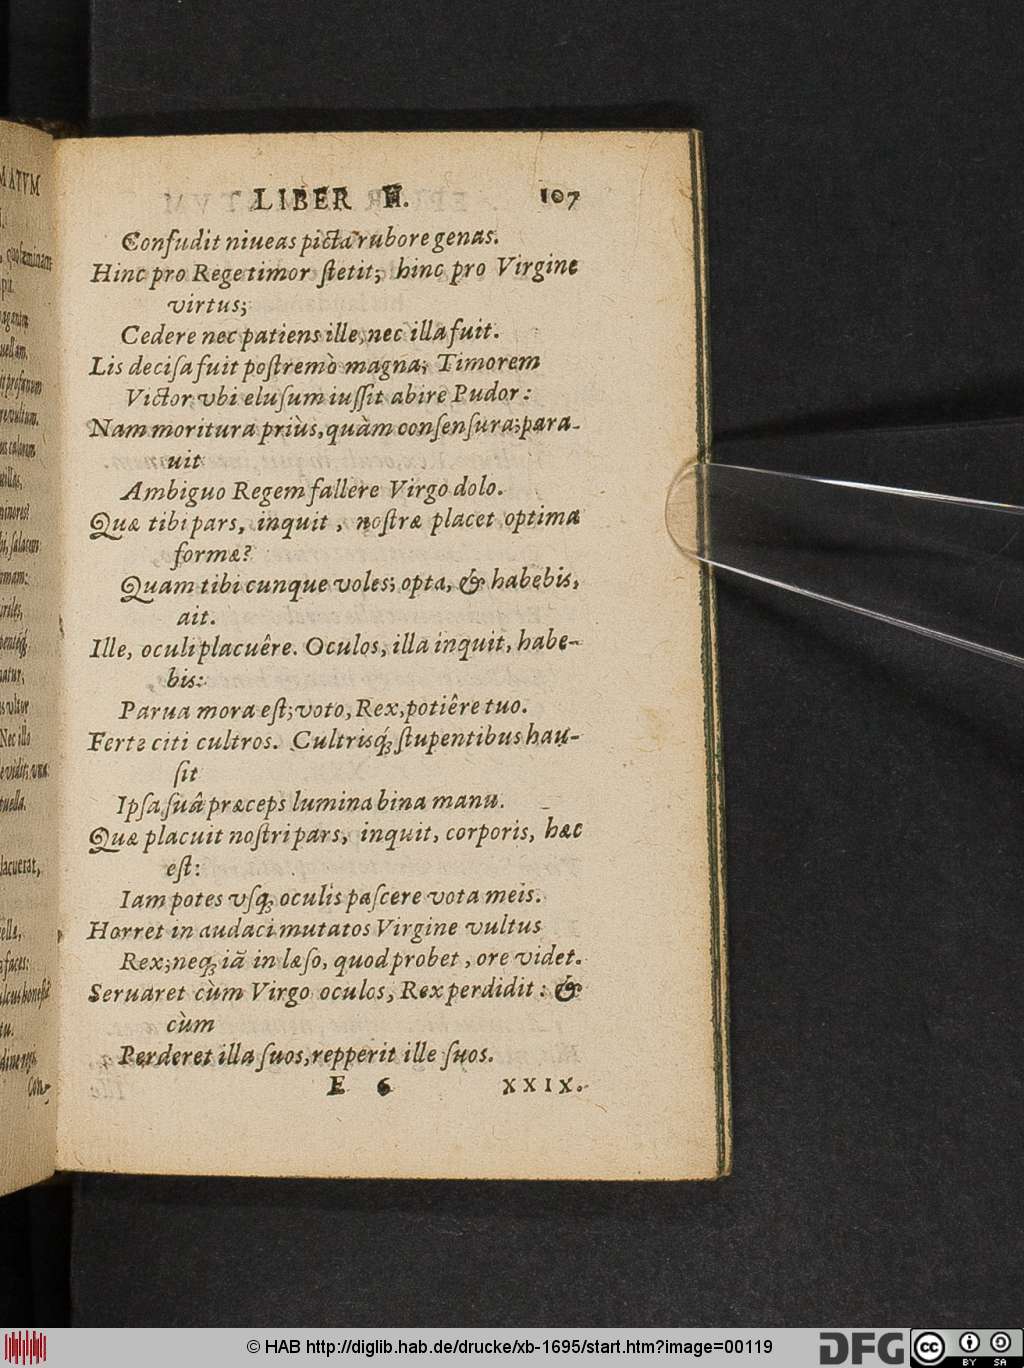 LIBER II. 107
Confudit niueas picta rubore genas.
Hinc pro Rege timor ſtetit; hinc pro Virgine
virtus;
Cedere nec patiens ille, nec illa fuit.
Lis deciſa fuit poſtremò magna; Timorem
Victor, vbi eluſum iuſſit abire Pudor:
Nam moritura priùs, quàm conſenſura; para-
uit
Ambiguo Regem fallere Virgo dolo.
Quæ tibi pars, inquit, noſtræ placet optima
formæ?
Quam tibi cunque voles; opta, & habebis,
ait.
Ille, oculi placuêre. Oculos, illa inquit, habe-
bis:
Parua mora eſt; voto, Rex, potiêre tuo.
Ferte citi cultros. Cultrisq́; ſtupentibus hau-
ſit
Ipſa ſuâ præceps lumina bina manu.
Quæ placuit noſtri pars, inquit, corporis, hæc
eſt:
Iam potes vſq; oculis paſcere vota meis.
Horret in audaci mutatos Virgine vultus
Rex; neq; iã in læſo, quod probet, ore videt.
Seruaret cùm Virgo oculos, Rex perdidit: &
cùm
Perderet illa ſuos, repperit ille ſuos.
E 6 XXIX.
MATVM
Con-
© HAB http://diglib.hab.de/drucke/xb-1695/start.htm?image=00119
DFG
cc
BY SA